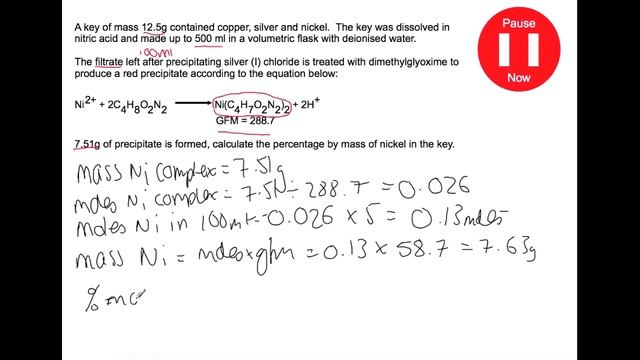 A key of mass 12.5g contained copper, silver and nickel. The key was dissolved in
nitric acid and made up to 500 ml in a volumetric flask with deionised water.
100ml
The filtrate left after precipitating silver (I) chloride is treated with dimethylglyoxime to
produce a red precipitate according to the equation below:
Ni2+ + 2C4H8O2N2 ⟶ Ni(C4H7O2N2)2 + 2H+
GFM = 288.7
7.51g of precipitate is formed, calculate the percentage by mass of nickel in the key.
mass Ni complex = 7.51g
moles Ni complex = 7.51 ÷ 288.7 = 0.026
moles Ni in 100ml = 0.026 x 5 = 0.13 moles
mass Ni = moles x gfm = 0.13 x 58.7 = 7.63g
% ma
Pause
Now